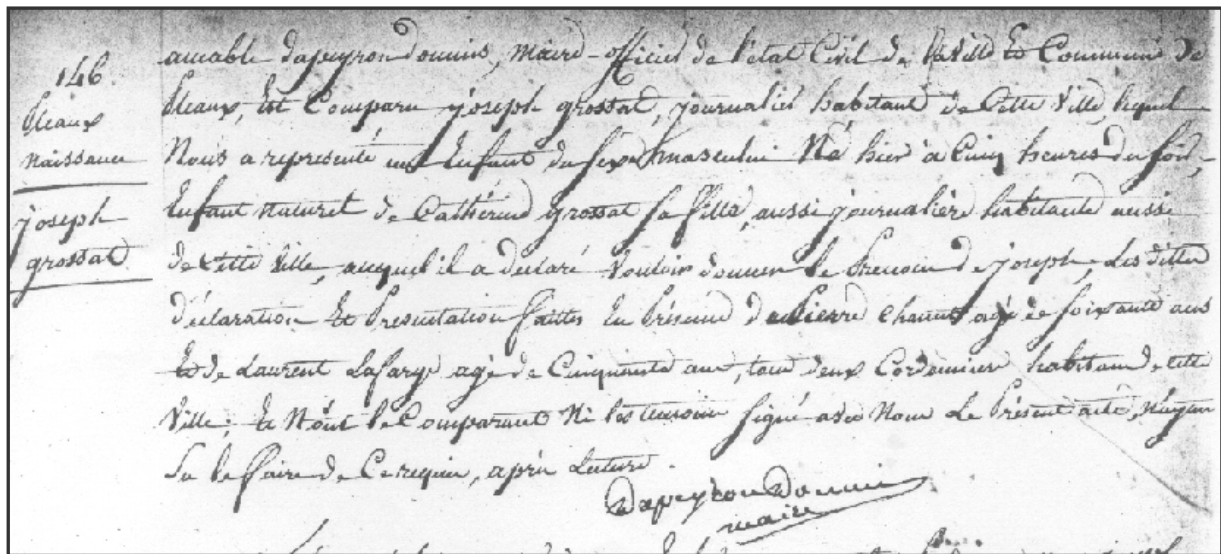 146
Pleaux
naissance
joseph
grossat
amable dapeyron doumis, maire-officier de l'état Civil de la Ville et Commune de
Pleaux, Est Comparu joseph grossat, journalier habitant de Cette Ville, lequel
Nous a représenté un Enfant du sexe masculin Né hier à Cinq heures du soir,
Enfant naturel de Catherine grossat sa fille, aussi journalière habitante aussi
de Cette Ville, auquel il a declaré Vouloir donner le Prenom de joseph, Les dittes
déclaration Et Presentation faittes En Présence de Pierre agé de soixante ans
Et de Laurent Lafarge agé de Cinquante ans, tous deux Cordonniers habitans de cette
Ville; Et N'ont le Comparant Ni les temoins signé avec Nous Le Présent acte, N'ayant
Su le faire de Ce requis, après Lecture.
Dapeyron Doumis
maire